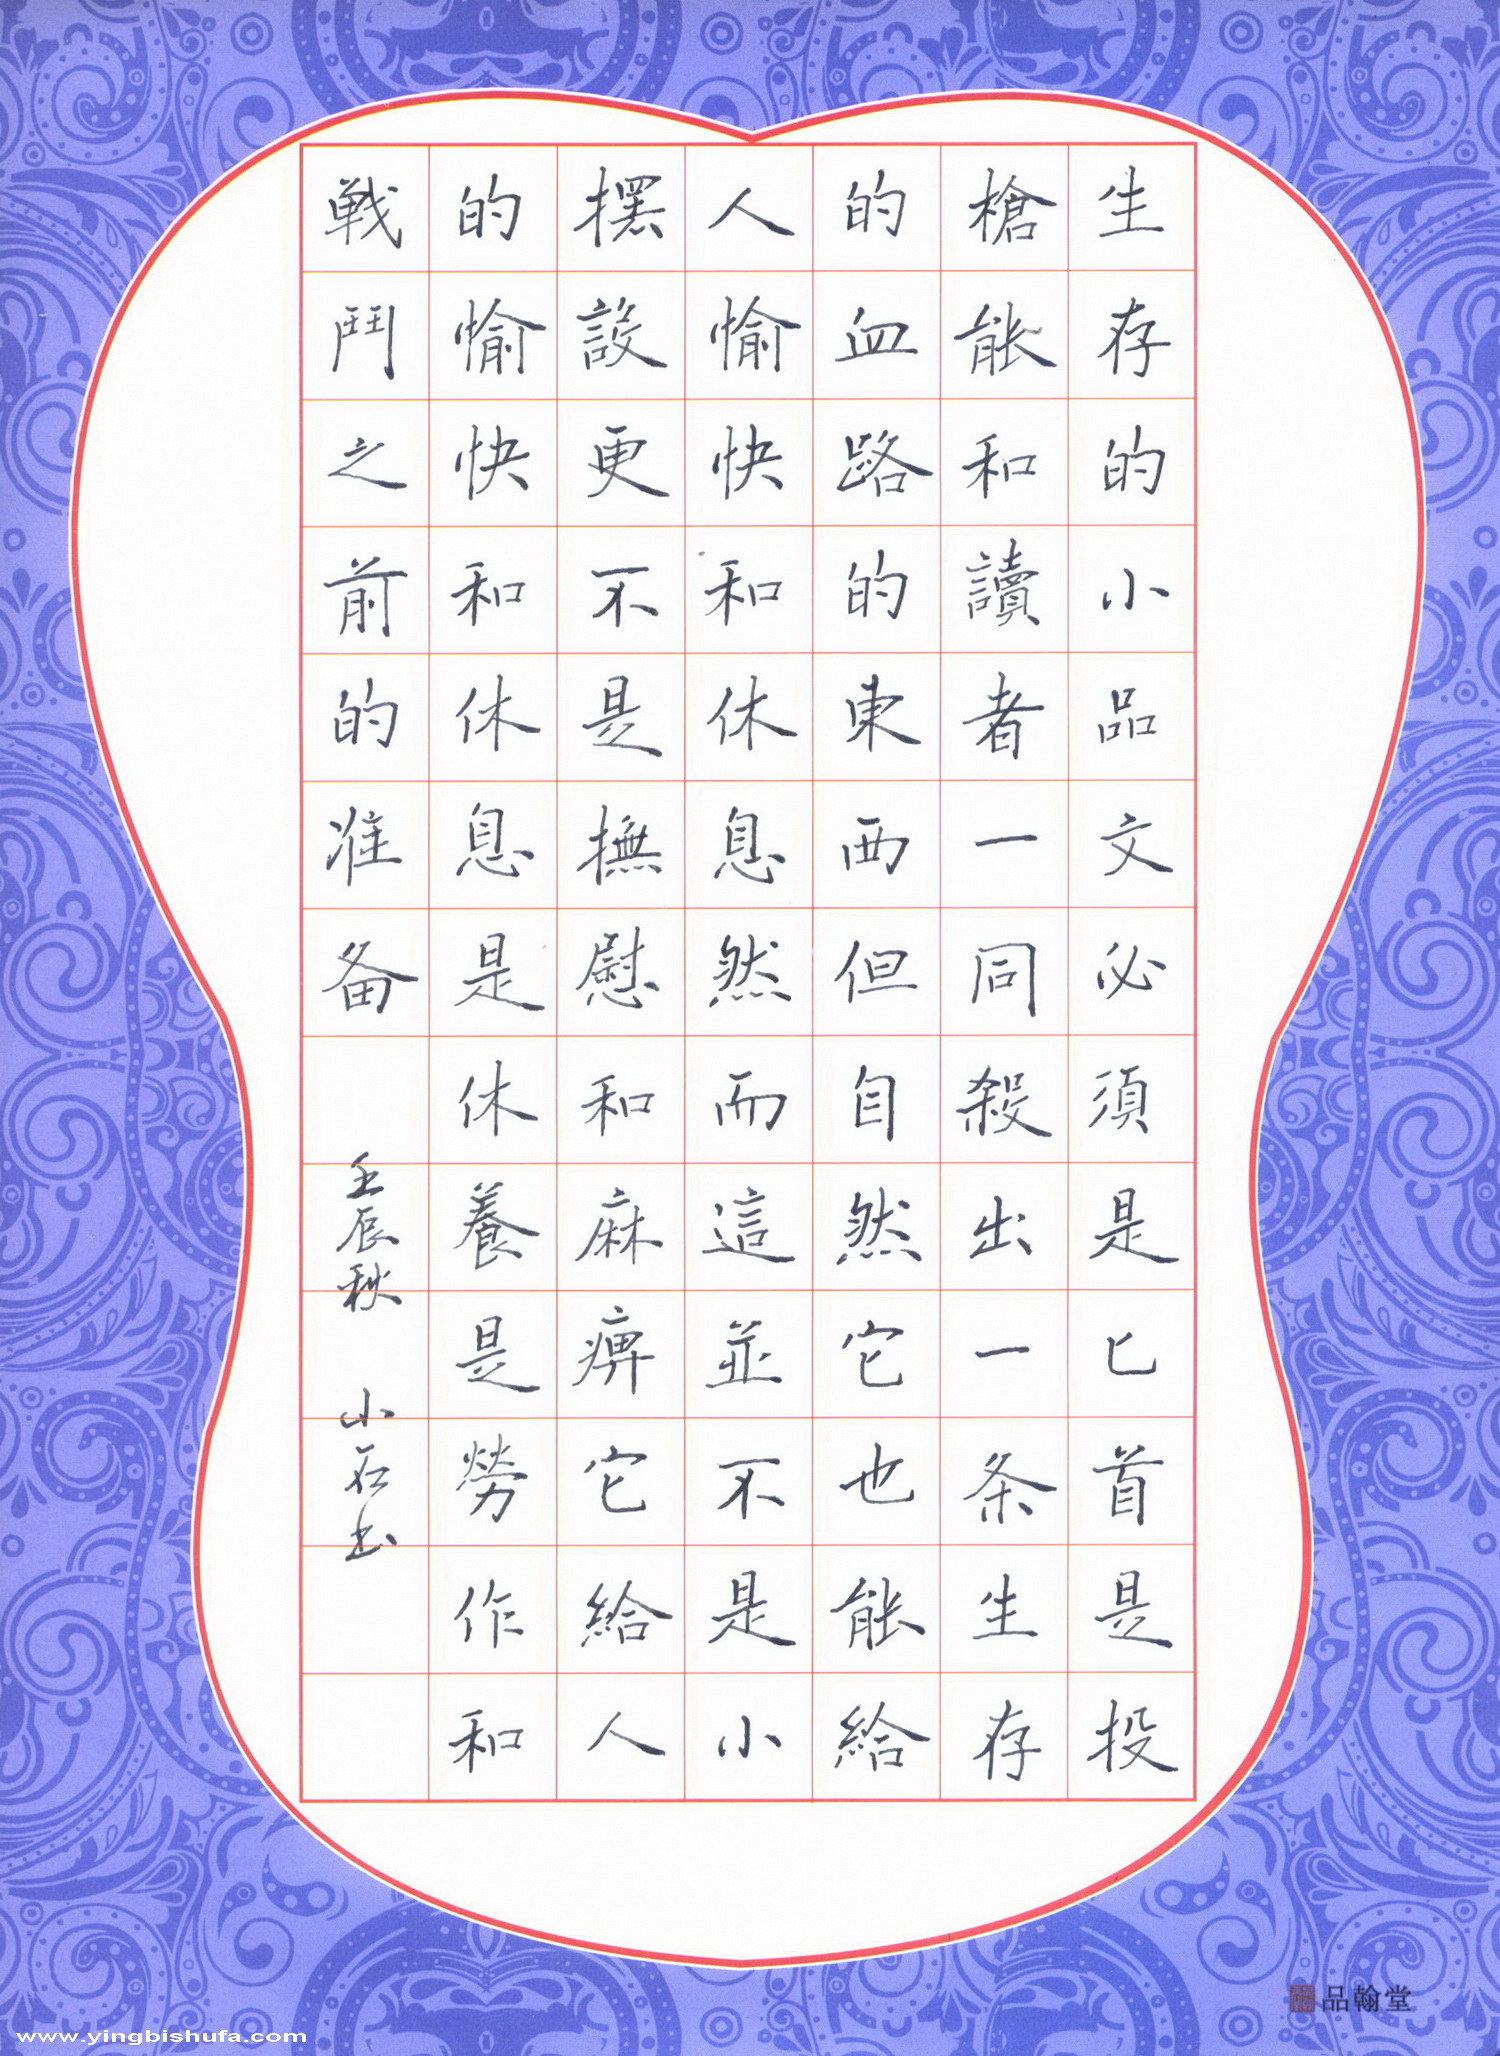 生存的小品文必須是匕首是投
槍能和讀者一同殺出一条生存
的血路的東西但自然它也能給
人愉快和休息然而這並不是小
擺設更不是撫慰和麻痹它給人
的愉快和休息是休養是勞作和
戦鬥之前的准备
壬辰秋 小石书
品翰堂
www.yingbishufa.com